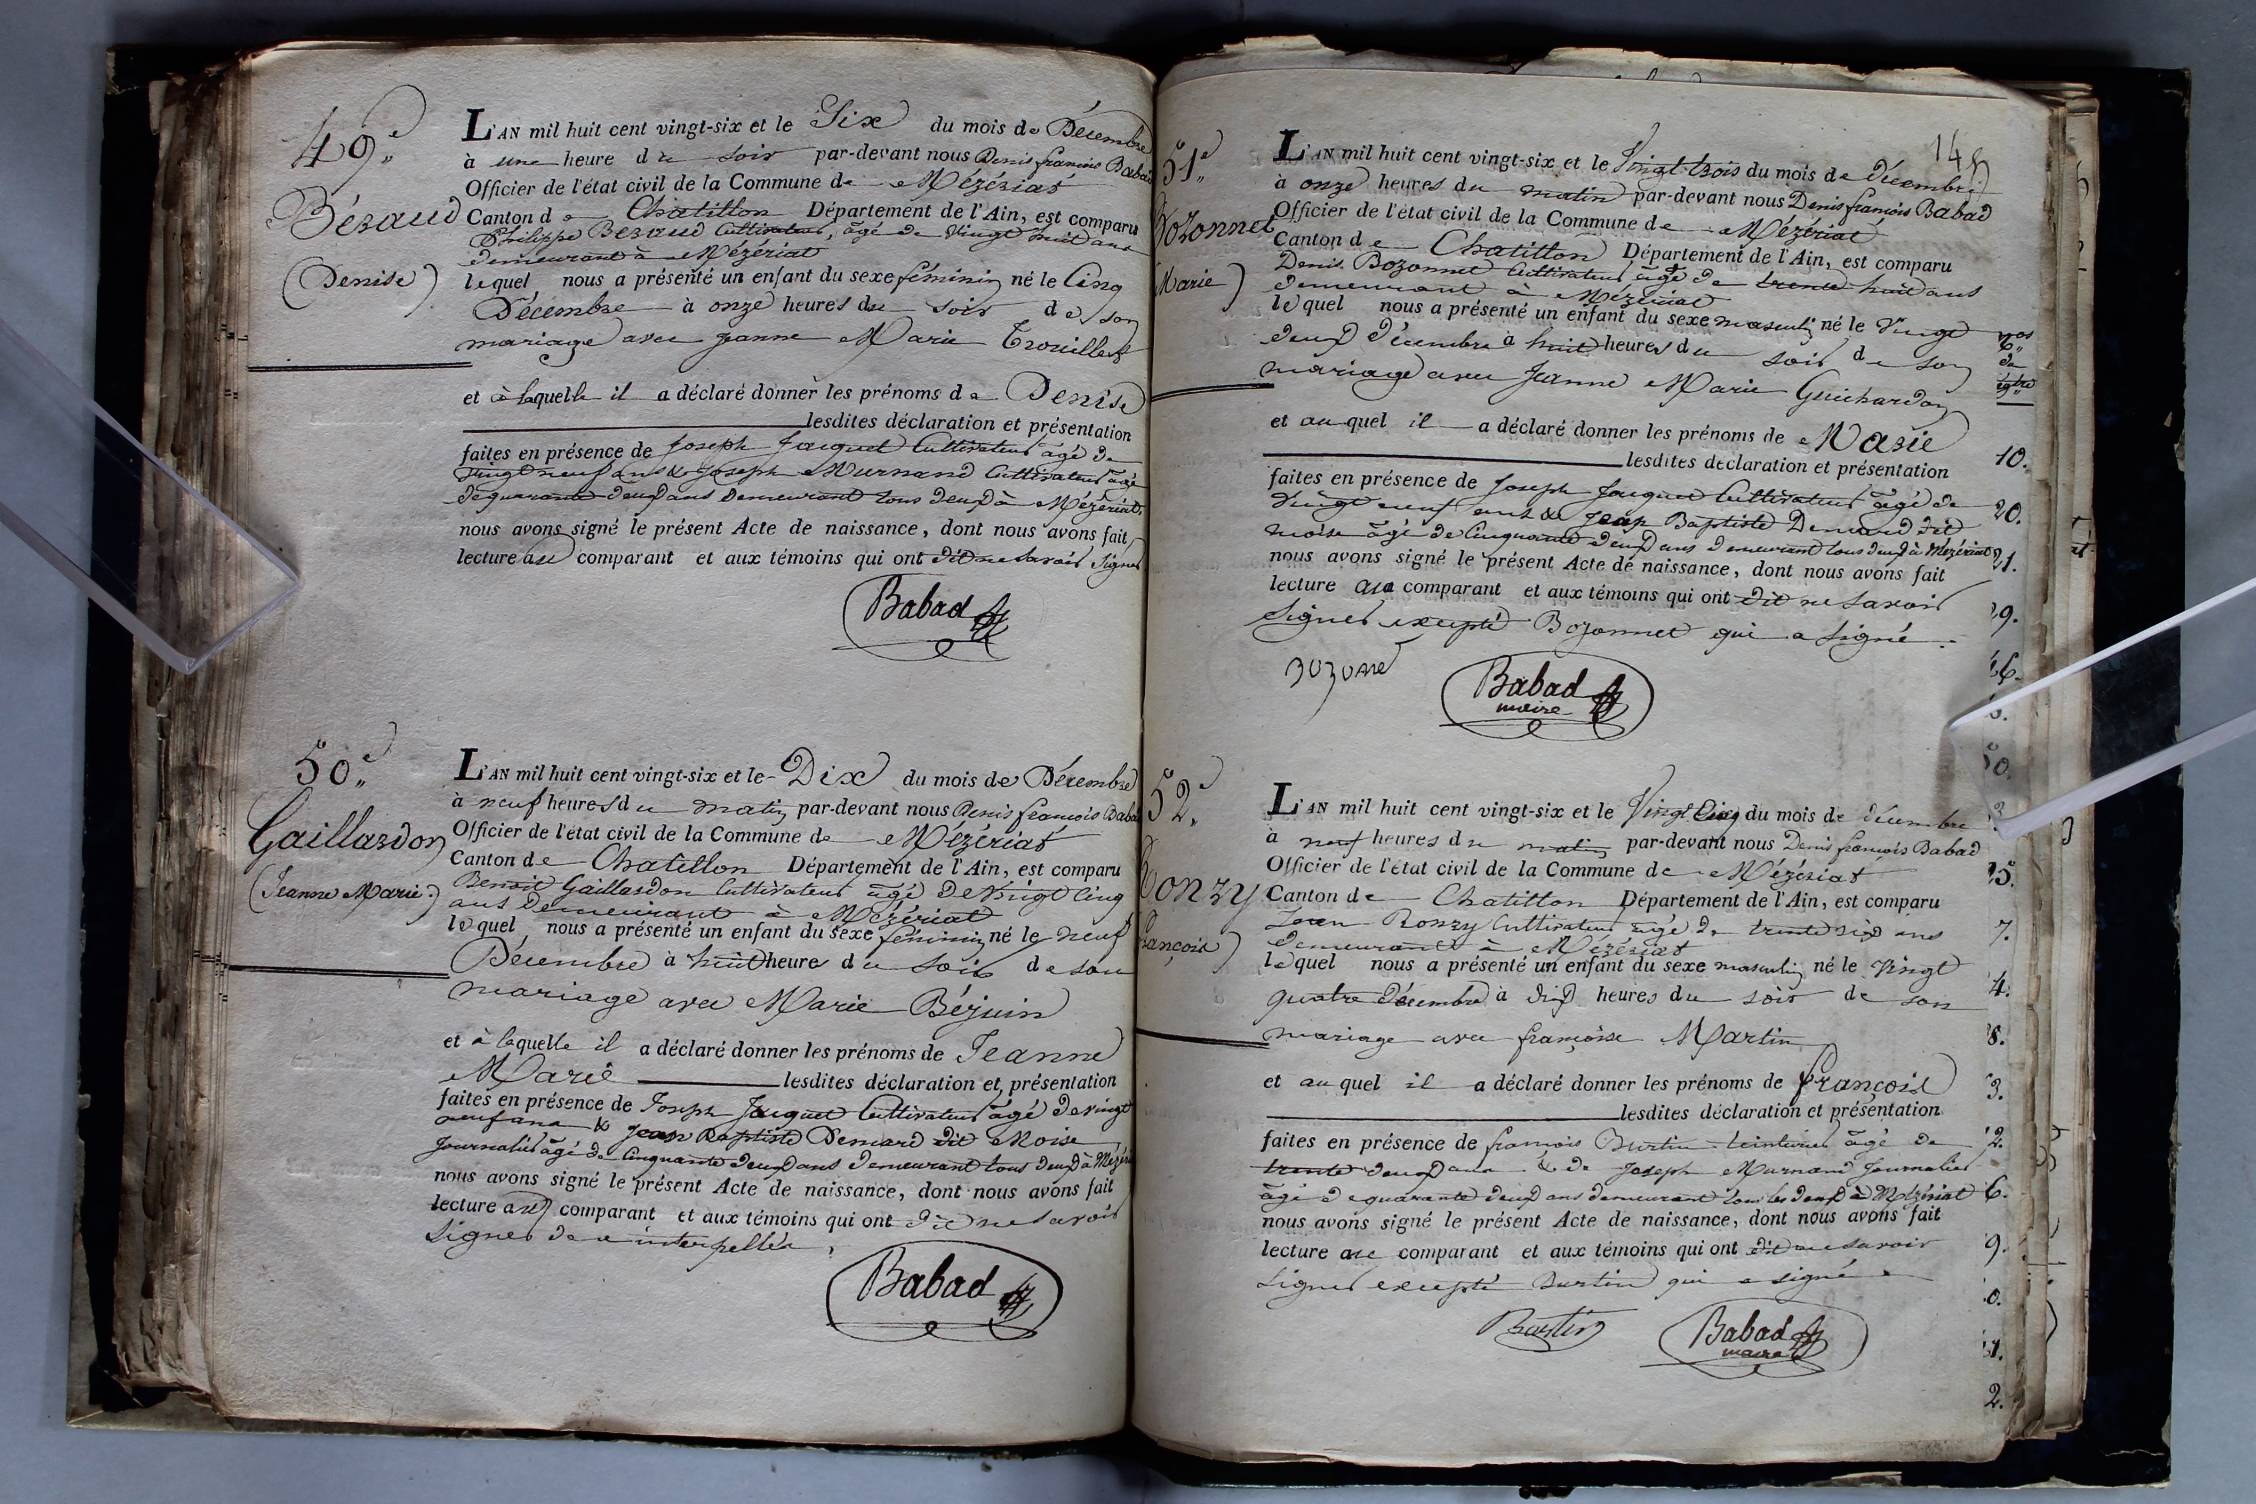 49e
Béraud
(Denise)
L'AN mil huit cent vingt-six et le Six du mois de Décembre
à une heure du soir par-devant nous Denis françois Babad
Officier de l'état civil de la Commune de Mézériat
Canton de Chatillon Département de l'Ain, est comparu
Philippe Beraud Cultivateur, âgé de Vingt huit ans
demeurant à Mézériat
lequel nous a présenté un enfant du sexe féminin né le Cinq
Décembre à onze heures du soir de son
mariage avec jeanne Marie Trouillet
et à laquelle il a déclaré donner les prénoms de Denise
lesdites déclaration et présentation
faites en présence de Joseph Jacquet Cultivateur âgé de
vingt neuf ans & Joseph Murnand Cultivateur âgé
de quarante deux ans demeurant tous deux à Mézériat,
nous avons signé le présent Acte de naissance, dont nous avons fait
lecture au comparant et aux témoins qui ont dit ne savoir signer
Babad
50e
Gaillardon
(Jeanne Marie)
L'AN mil huit cent vingt-six et le Dix du mois de Décembre
à neuf heures du matin par-devant nous Denis françois Babad
Officier de l'état civil de la Commune de Mézériat
Canton de Chatillon Département de l'Ain, est comparu
Benoit Gaillardon Cultivateur âgé de vingt cinq
ans demeurant à Mézériat
lequel nous a présenté un enfant du sexe féminin né le neuf
Décembre à huit heures du soir de son
mariage avec Marie Béjuin
et à laquelle il a déclaré donner les prénoms de Jeanne
Marie lesdites déclaration et présentation
faites en présence de Joseph Jacquet Cultivateur âgé de vingt
neuf ans & jean Baptiste Demard dit Moise
Journalier âgé de Cinquante deux ans demeurant tous deux à Mézériat
nous avons signé le présent Acte de naissance, dont nous avons fait
lecture au comparant et aux témoins qui ont dit ne savoir
signer de ce interpellés,
Babad
145
51e
Bozonnet
Marie)
L'AN mil huit cent vingt-six et le Vingt trois du mois de décembre
à onze heures du matin par-devant nous Denis françois Babad
Officier de l'état civil de la Commune de Mézériat
Canton de Chatillon Département de l'Ain, est comparu
Denis Bozonnet Cultivateur âgé de trente huit ans
demeurant à Mézériat
lequel nous a présenté un enfant du sexe masculin né le Vingt
deux décembre à huit heures du soir de son
mariage avec Jeanne Marie Guichardon
et auquel il a déclaré donner les prénoms de Marie
lesdites déclaration et présentation
faites en présence de Joseph Jacquet Cultivateur âgé de
Vingt neuf ans & jean Baptiste Demard dit
moise âgé de Cinquante deux ans demeurant tous deux à Mézériat
nous avons signé le présent Acte de naissance, dont nous avons fait
lecture au comparant et aux témoins qui ont dit ne savoir
signer excepté Bozonnet qui a signé.
Babad
maire
52e
Ronzy
françois)
L'AN mil huit cent vingt-six et le Vingt Cinq du mois de décembre
à neuf heures du matin par-devant nous Denis françois Babad
Officier de l'état civil de la Commune de Mézériat
Canton de Chatillon Département de l'Ain, est comparu
Jean Ronzy Cultivateur âgé de trente six ans
demeurant à Mézériat
lequel nous a présenté un enfant du sexe masculin né le Vingt
quatre décembre à dix heures du soir de son
mariage avec françoise Martin
et auquel il a déclaré donner les prénoms de françois
lesdites déclaration et présentation
faites en présence de françois Burtin teinturier âgé de
trente deux ans & de Joseph Murnand Journalier
âgé de quarante deux ans demeurant tous les deux à Mézériat
nous avons signé le présent Acte de naissance, dont nous avons fait
lecture au comparant et aux témoins qui ont dit ne savoir
signer excepté Burtin qui a signé
Burtin
Babad
maire
10.
20.
21.